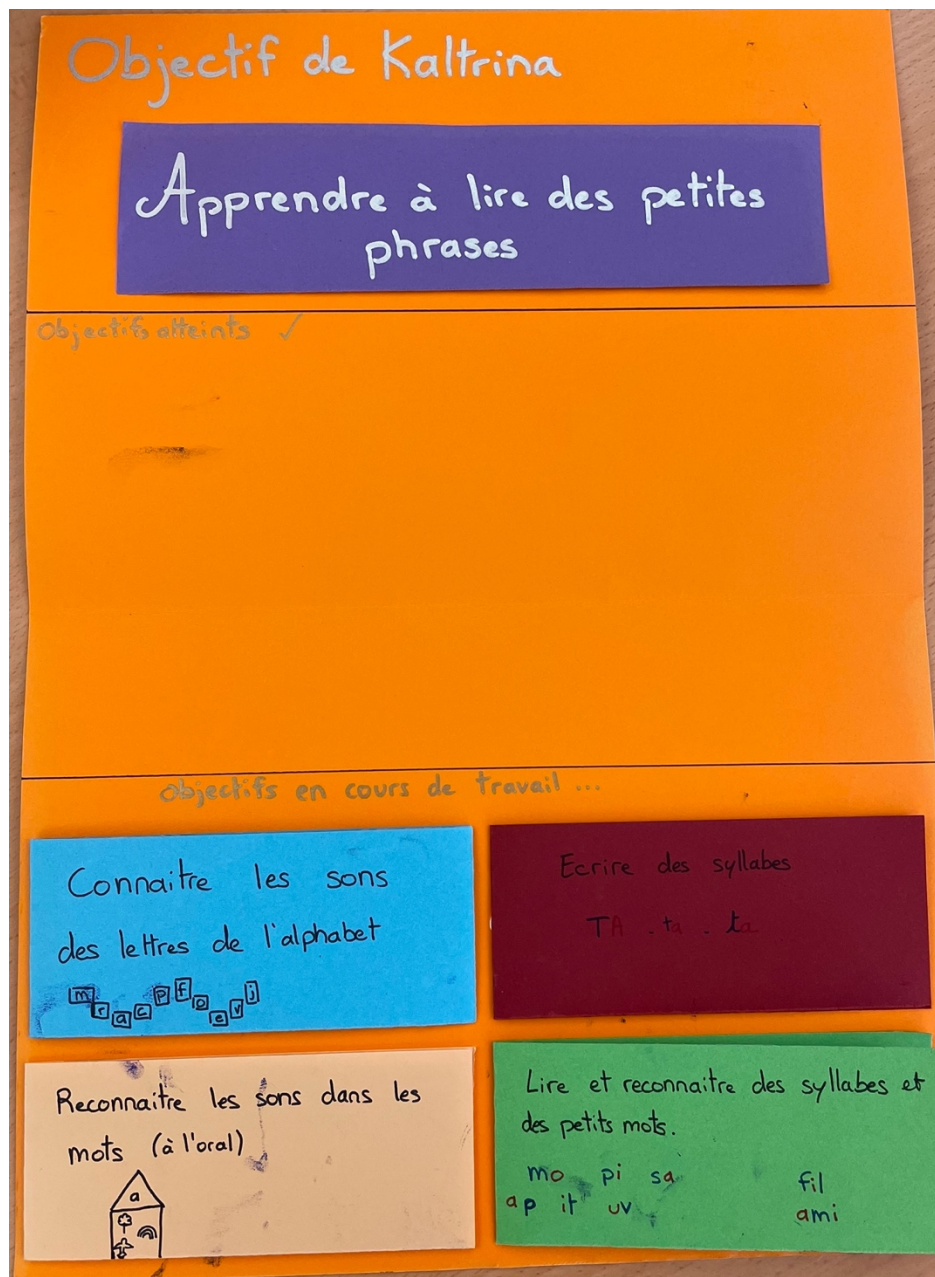 Objectif de Kaltrina
Apprendre à lire des petites
phrases
Objectifs atteints ✓
Objectifs en cours de travail ...
Connaitre les sons
des lettres de l'alphabet
m r a c p f o e v j
Ecrire des syllabes
TA . ta . ta
Reconnaitre les sons dans les
mots (à l'oral)
a
Lire et reconnaitre des syllabes et
des petits mots.
mo pi sa fil
ap it uv ami